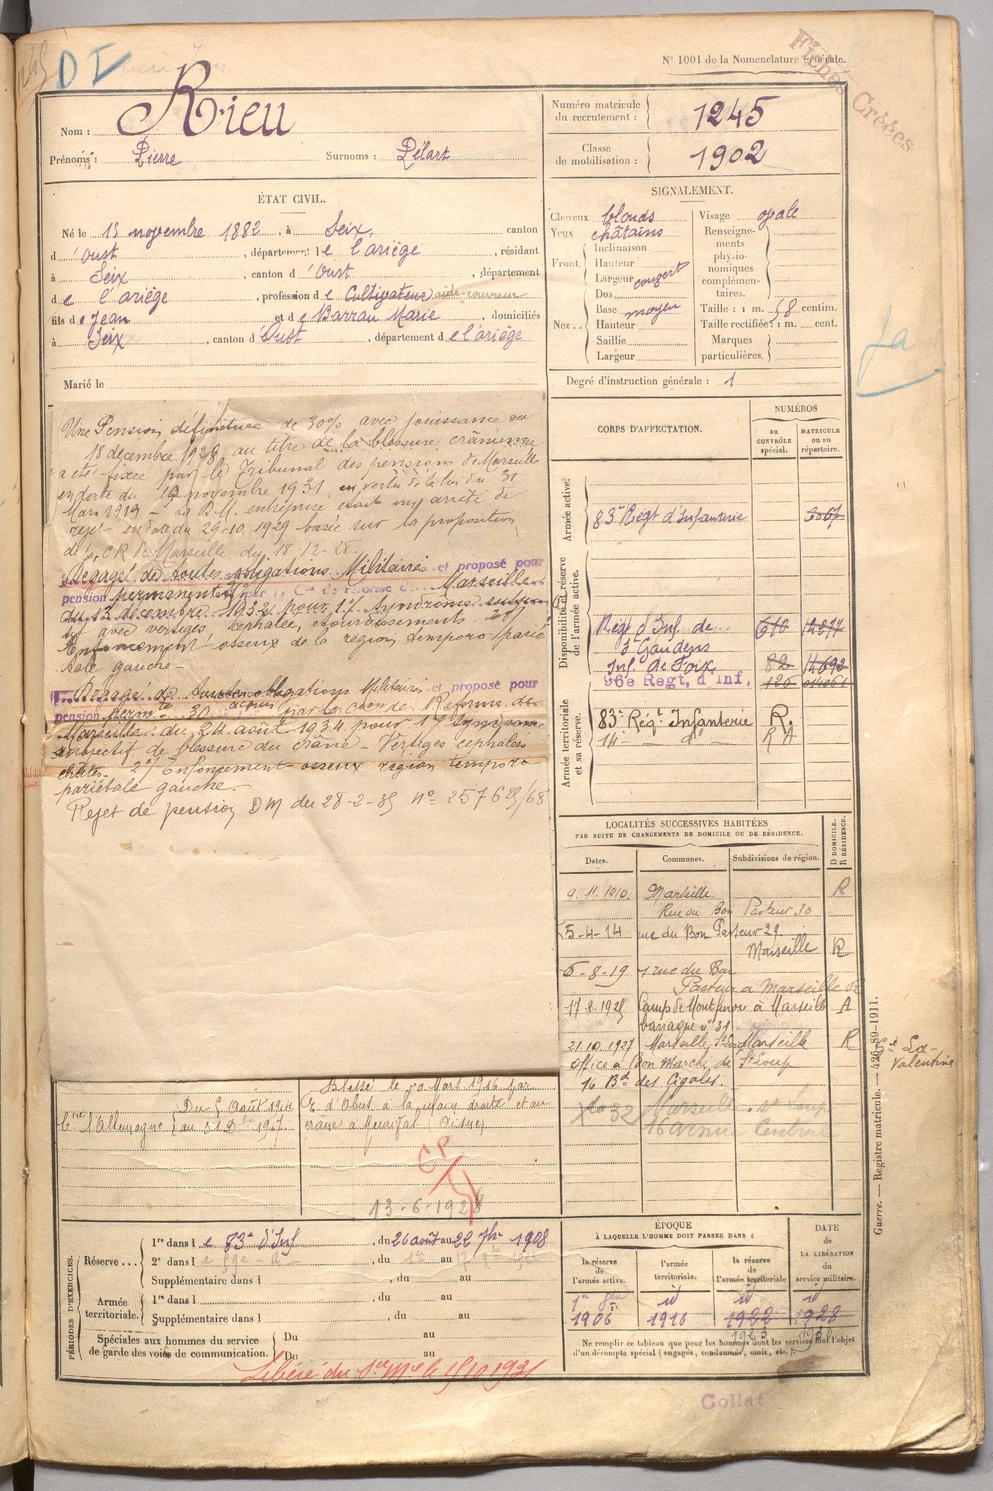 DI
N° 1001 de la Nomenclature générale.
Fiches Créées
Nom : Rieu
Prénoms : Pierre Surnoms : Pélart
Numéro matricule du recrutement : 1245
Classe de mobilisation : 1902
ÉTAT CIVIL.
Né le 13 novembre 1882, à Seix, canton
d'Oust, département de l'ariège, résidant
à Seix, canton d'Oust, département
de l'ariège, profession de Cultivateur
fils de Jean et de Barrau Marie, domiciliés
à Seix, canton d'Oust, département de l'ariège
Marié le
SIGNALEMENT.
Cheveux blonds
Yeux châtains
Front Inclinaison
Hauteur
Largeur couvert
Nez Dos
Base moyen
Hauteur
Saillie
Largeur
Visage ovale
Renseignements physionomiques complémentaires.
Taille : 1 m. 58 centim.
Taille rectifiée : 1 m. cent.
Marques particulières.
Degré d'instruction générale : 1
Une Pension définitive de 30% avec jouissance du
18 decembre 1928, au titre de la blessure crânienne
a été fixée par le Tribunal des pensions de Marseille
en date du 19 novembre 1931 en vertu de la loi du 31
Mars 1919 - La D.M. entreprise était un arrêté de
rejet en date du 29-10-1929 basée sur la proposition
de la CR de Marseille du 18-12-28
Dégagé de toutes obligations Militaires et proposé pour
pension permanente par la Con de réforme de Marseille
du 13 décembre 1932 pour 1°/ Syndrome
avec vertiges céphalée, étourdissements. 2°/
Enfoncement osseux de la région temporo parié
tale gauche -
Dégagé de toutes obligations Militaires et proposé pour
pension permte 30 par la Con de Réforme de
Marseille du 24 août 1934 pour 1°/ Syndrome
subjectif de blessure du crâne - Vertiges cephalées
2°/ Enfoncement osseux region temporo
pariétale gauche.
Rejet de pension DM du 28-2-35
CORPS D'AFFECTATION.
NUMÉROS
au CONTRÔLE spécial.
MATRICULE ou au répertoire.
Armée active.
83e Regt d'Infanterie
Disponibilité et réserve de l'armée active.
Regt d'Inf. de
St Gaudens
Inf. de Foix
96e Regt, d'Inf,
Armée territoriale et sa réserve.
83e Regt Infanterie R.
14e d° R A
LOCALITÉS SUCCESSIVES HABITÉES
PAR SUITE DE CHANGEMENTS DE DOMICILE OU DE RÉSIDENCE.
Dates. Communes. Subdivisions de région. D DOMICILE. R RÉSIDENCE.
9.11.1910. Marseille R
Rue du Bon Pasteur 30
5-4-14 rue du Bon Pasteur 29
Marseille R
6-8-19 1 rue du Bon
Pasteur à Marseille
17.2.1925 Camp de Montfuron à Marseille A
barraque n° 31
21.10.1927 Marseille, St Loup Marseille R
Office à Bon Marché, de St Loup
16 Bd des Cigales.
Marseille. St Loup
16 avenue Centrale
La Valentine
Guerre. — Registre matricule. — 426-89-1911.
Ctre l'Allemagne Du 5 Août 1914
au 31 Dbre 1917.
Blessé le 10 Mars 1916 par
E. d'Obus, à la main droite et au
crâne à (Aisne)
CP
13-6-1928
PÉRIODES D'EXERCICES.
Réserve... 1re dans le 83e d'Inf, du 26 août au 22 7bre 1908
2e dans le du au
Supplémentaire dans l du au
Armée territoriale. 1re dans l du au
Supplémentaire dans l du au
Spéciales aux hommes du service de garde des voies de communication. Du au
Du au
Libéré du Sce Mre le 15 10 1931
ÉPOQUE
À LAQUELLE L'HOMME DOIT PASSER DANS :
la réserve de l'armée active.
l'armée territoriale.
la réserve de l'armée territoriale
DATE de LA LIBÉRATION du service militaire.
1er id id id
1906 1916 1922 1928
1923
Ne remplir ce tableau que pour les hommes dont les services font l'objet
d'un décompte spécial (engagés, condamnés, omis, etc.).
Collat